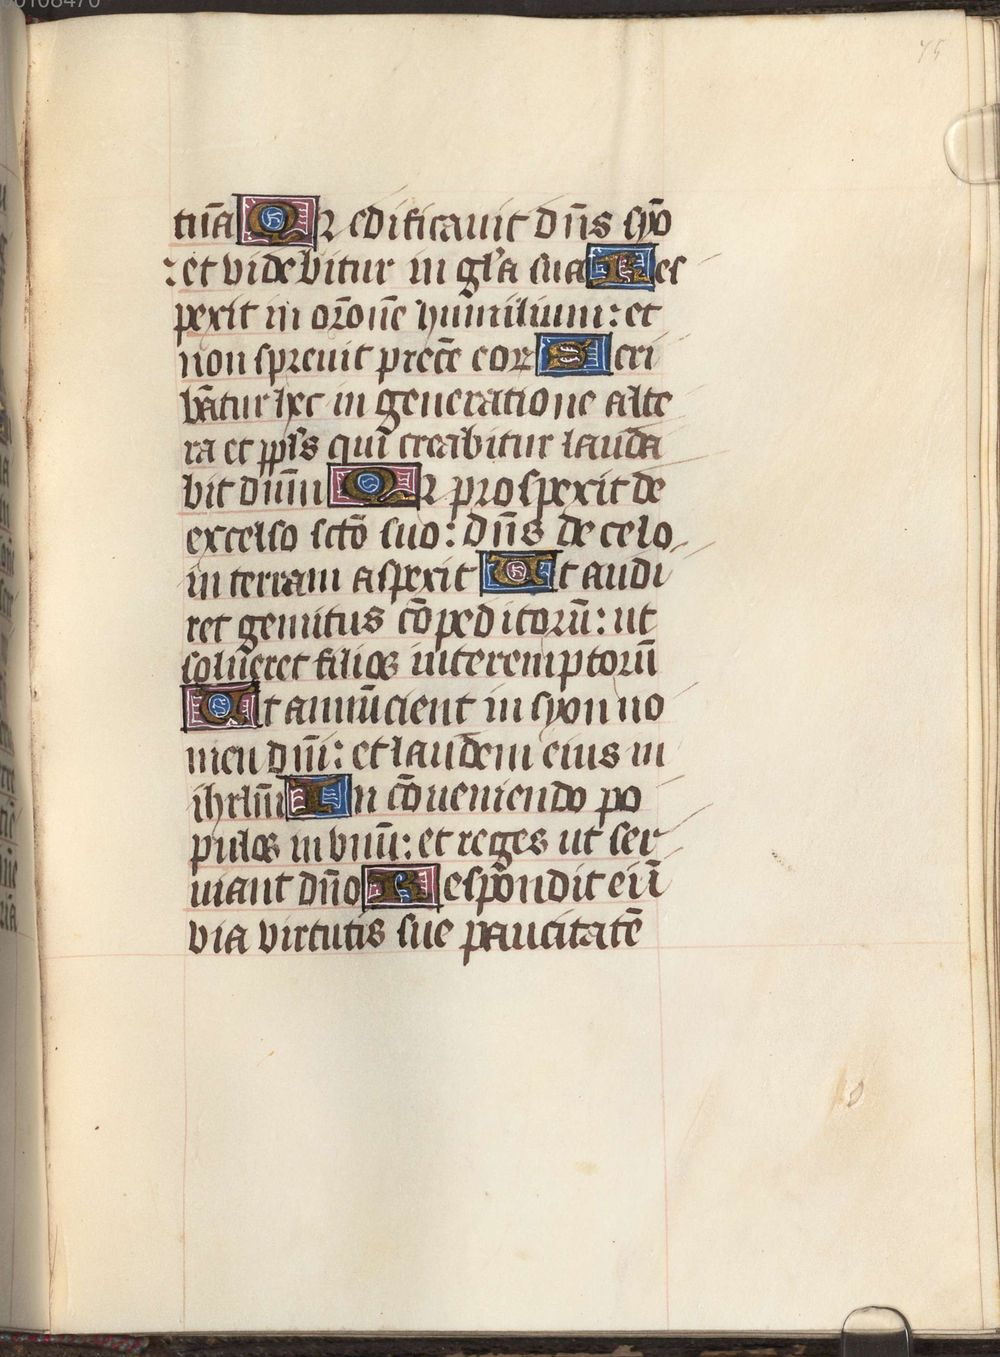 75
tuā Qꝛ edificauit dn̄s syō
: et videbitur in gl̓a sua Res
pexit in orōne humilium: et
non spreuit precē eoꝝ Scri
bātur hec in generatione alte
ra et ppl̓s qui creabitur lauda
bit dnm̄ Qꝛ prospexit de
excelso sctō suo: dn̄s de celo
in terram aspexit Ut audi
ret gemitus cōpeditorū: ut
solueret filios interemptorū
Ut annūcient in syon no
men dn̄i: et laudem eius in
ihrlm̄ In cōueniendo po
pulos in vnū: et reges ut ser
uiant dn̄o Respondit ei ī
via virtutis sue paucitatē